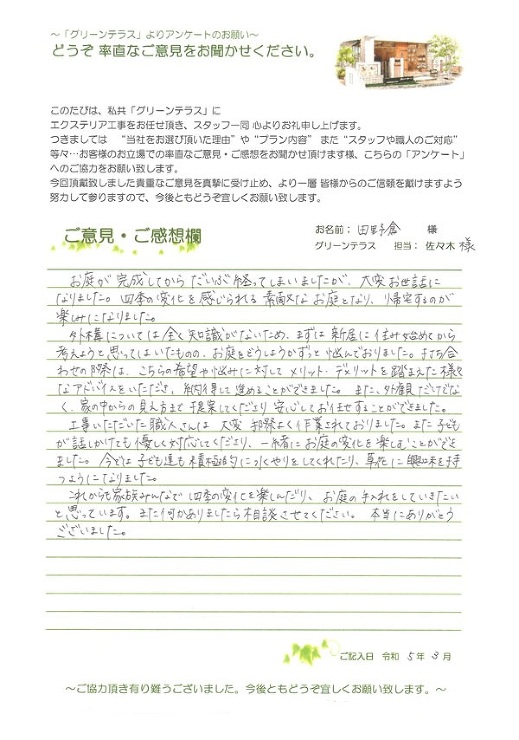 ～「グリーンテラス」よりアンケートのお願い～
どうぞ 率直なご意見をお聞かせください。
このたびは、私共「グリーンテラス」に
エクステリア工事をお任せ頂き、スタッフ一同 心よりお礼申し上げます。
つきましては “当社をお選び頂いた理由” や “プラン内容” また “スタッフや職人のご対応”
等々…お客様のお立場での率直なご意見・ご感想をお聞かせ頂けます様、こちらの「アンケート」
へのご協力をお願い致します。
今回頂戴致しました貴重なご意見を真摯に受け止め、より一層 皆様からのご信頼を戴けますよう
努力して参りますので、今後ともどうぞ宜しくお願い致します。
お名前：田野倉 様
ご意見・ご感想欄
グリーンテラス 担当：佐々木 様
お庭が完成してからだいぶ経ってしまいましたが、大変お世話に
なりました。四季の変化を感じられる素敵なお庭となり、帰宅するのが
楽しみになりました。
外構については全く知識がないため、まずは新居に住み始めてから
考えようと思ってはいたものの、お庭をどうしようかずっと悩んでおりました。打ち合
わせの際は、こちらの希望や悩みに対してメリット・デメリットを踏まえた様々
なアドバイスをいただき、納得して進めることができました。また、外観だけでな
く、家の中からの見え方まで提案してくださり安心してお任せすることができました。
工事いただいた職人さんは大変手際よく作業されておりました。また子ども
が話しかけても優しく対応してくださり、一緒にお庭の変化を楽しむことができ
ました。今では子ども達も積極的に水やりをしてくれたり、草花に興味を持
つようになりました。
これからも家族みんなで四季の変化を楽しんだり、お庭の手入れをしていきたい
と思っています。また何かありましたら相談させてください。本当にありがとう
ございました。
ご記入日 令和 5年 3月
～ご協力頂き有り難うございました。今後ともどうぞ宜しくお願い致します。～